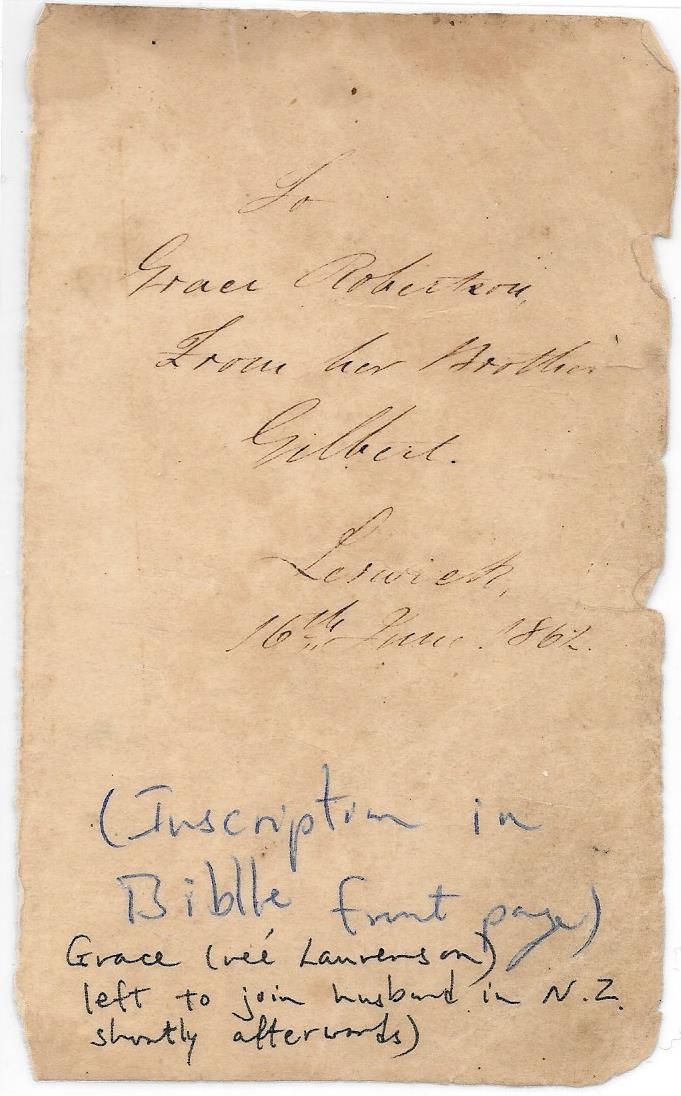 To
Grace Robertson,
From her Brother
Gilbert.
Lerwick,
16th June 1862.
(Inscription in
Biblle front page)
Grace (neé Laurenson)
left to join husband in N.Z.
shortly afterwards)